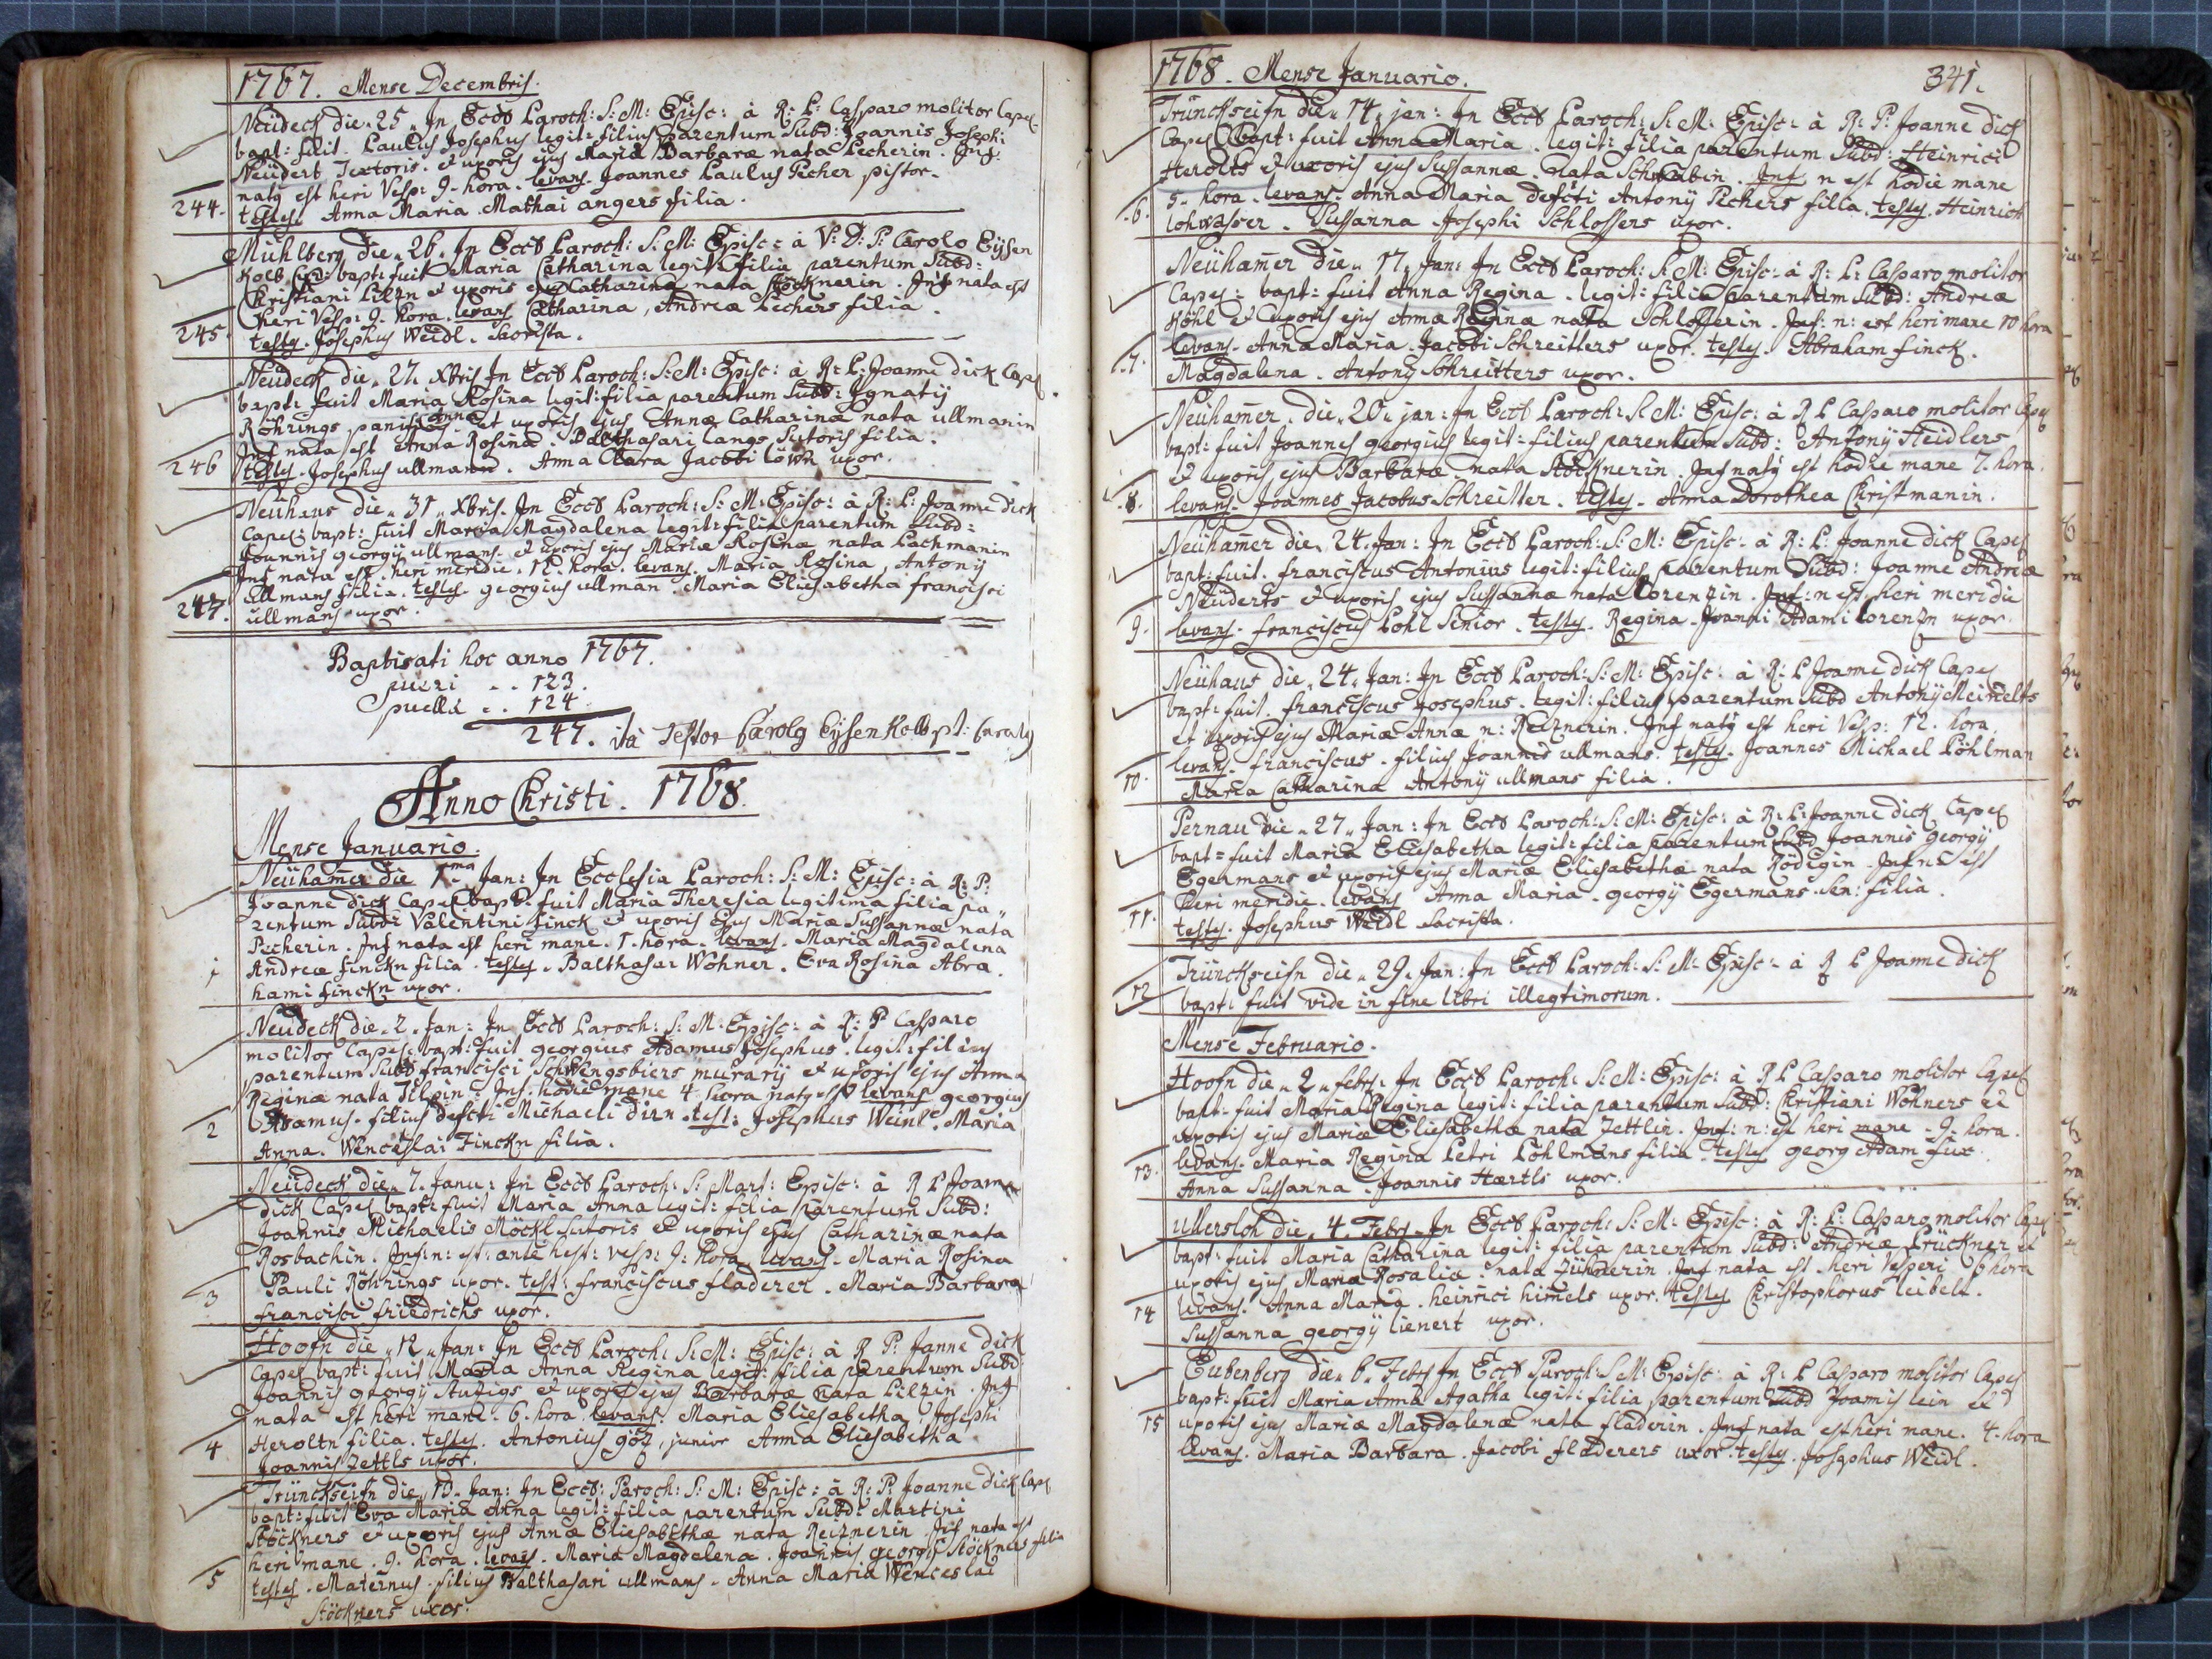 1767. Mense Decembris.
Neüdeck die 25. In Eccl Paroch: S: M: Episc: à R: P: Casparo molitor Capel
bapt: fuit Paulus Josephus legit: filius parentum Subd: Joannis Joseph:
Neüdert Textoris et uxoris ejus Maria Barbaræ nata Pecherin. Inf:
natus est heri Vesp: 9. hora. levans. Joannes Paulus Pecher pistor.
244. testes. Anna Maria Mathai angers filia.
Mühlberg die 26. In Eccl Paroch: S: M: Episc: à V: D: P: Carolo Eysen
Kolb Cur: bapt: fuit Maria Catharina legit: filia parentum Subd:
Christiani Pilzn et uxoris ejus Catharina nata Stöcknerin. Inf nata est
heri Vesp: 9. hora. levans Catharina, Andreæ Pechers filia.
245. testes. Josephus Weidl. Sacrista.
Neüdeck die 27. Xbris In Eccl Paroch: S: M: Episc: à R: P: Joanne dick Capel
bapt: fuit Maria Rosina legit: filia parentum Subd: Ignatij
Röhrings panif: et uxoris ejus Annæ Catharinæ nata ullmanin
Inf nata est Anna Rosina. Balthasari Langs Sutoris filia.
246 testes. Josephus ullmann. Anna Clara Jacobi Löwn uxor.
Neühaus die 31. Xbris. In Eccl Paroch: S: M: Episc: à R: P: Joanne dick
Capel: bapt: fuit Maria Magdalena legit: filia parentum Subd:
Joannis georgij ullmans et uxoris ejus Mariæ Rosinæ nata Lachmanin
Inf nata est heri meridie. 12. hora. levans. Maria Rosina, Antonij
ullmans filia. testes. georgius ullman. Maria Eliesabetha francisci
247. ullmans uxor.
Baptisati hoc anno 1767.
pueri . . 123.
puellæ . . 124
247. ità Testor Carolg Eysenkolb pt: Curatg
Anno Christi. 1768.
Mense Januario.
Neühamer die 1ma Jan: In Ecclesia Paroch: S: M: Episc: à R: P:
Joanne dick Capel bapt: fuit Maria Theresia legitima filia pa„
rentum Subdi Valentini finck et uxoris ejus Mariæ Sussannæ nata
Pecherin. Inf nata est heri mane. 1. hora. levans. Maria Magdalena
1 Andreæ finckn filia. testes. Balthasar Wohner. Eva Rosina Abra.
hami finckn uxor.
Neüdeck die 2. Jan: In Eccl Paroch: S: M: Episc: à R: P Casparo
molitor Capel: bapt: fuit georgius Adamus Josephus. legit: filius
parentum Subd francisci Schwengsbiers murarij et uxoris ejus Anna
Reginæ nata Ilgin. Inf: hodie mane 4 hora natus est levans georgius
2 Adamus. filius defcti Michaeli dirn. test: Josephus Weinl. Maria
Anna. Wenceslai Finckn filia.
Neüdeck die 7. Janu: In Eccl Paroch: S: Mart: Episc: à R P Joanne
dick Capel bapt: fuit Maria Anna legit: filia parentum Subd:
Joannis Michaelis Möckl Sutoris et uxoris ejus Catharinæ nata
Rosbachin. Inf: n: est. ante hest: vesp: 9. hora. levans. Maria Rosina
3 Pauli Röhrings uxor. test: franciscus fladerer. Maria Barbara
francisci friedrichs uxor.
Hoofn die 12. Jan: In Eccl Paroch: S: M: Episc: à R P: Janne dick
Capel bapt: fuit Maria Anna Regina legit: filia parentum Subd:
Joannis georgij Stuzigs et uxoris ejus Barbaræ nata Pilzin. Inf
nata est heri mane. 6. hora. levans. Maria Eliesabetha, Josephi
4 Heroltn filia. testes. Antonius göz, junior Anna Eliesabetha
Joannis Zettls uxor.
Trünckseifn die 13. Jan: In Eccl: Paroch: S: M: Episc: à R: P: Joanne dick Capel
bapt: fuit Eva Maria Anna legit: filia parentum Subd: Martini
Stöckners et uxoris ejus Annæ Eliesabethæ nata Reiznerin. Inf nata est
heri mane. 9. hora. levans. Maria Magdalena. Joannis georgij Stöckners filia
5 testes. Maternus. filius Balthasari ullmans. Anna Maria Wenceslai
Stöckners uxor.
1768. Mense Januario. 341.
Trünckseifn die 14. jan: In Eccl Paroch: S: M: Episc: à R: P: Joanne dick
Capel bapt: fuit Anna Maria. legit: filia parentum Subd: Heinrici
Herolts et uxoris ejus Sussannæ. nata Schwabin. Inf n est hodie mane
5. hora. levans. Anna Maria defcti Antonij Pechers filia. testes. Heinrich
6. Lohwasser. Sussanna. Josephi Schlossers uxor.
Neühamer die 17. Jan: In Eccl Paroch: S: M: Episc: à R: P: Casparo molitor
Capel: bapt: fuit Anna Regina. legit: filia parentum Subd: Andreæ
Köhl et uxoris ejus Annæ Reginæ nata Schlosserin. Inf: n: est heri mane 10 hora
levans. Anna Maria. Jacobi Schreitters uxor. testes. Abraham finck.
7. Magdalena. Antonij Schreitters uxor.
Neühamer. die 20. jan: In Eccl Paroch: S: M: Episc: à R P Casparo molitor Capel
bapt: fuit Joannes georgius legit: filius parentum Subd: Antonij Heidlers
et uxoris ejus Barbaræ nata Stöcknerin. Inf natus est hodie mane 7. hora.
8. levans. Joannes Jacobus Schreitter. testes. Anna Dorothea Christmanin.
Neühamer die 24. Jan: In Eccl Paroch: S: M: Episc: à R: P: Joanne dick Capel
bapt: fuit. franciscus Antonius legit: filius parentum Subd: Joanne Andreæ
Neüderts et uxoris ejus Sussannæ nata Lorenzin. Inf: n est. heri meridie
9. levans. franciscus Pohl Senior. testes. Regina. Joanni Adami Lorenzn uxor.
Neühaus die 24. Jan: In Eccl Paroch: S: M: Episc: à R: P Joanne dick Capel
bapt: fuit. franciscus Josephus. legit: filius parentum Subd Antonij Meinelts
et uxoris ejus Mariæ Annæ n: Reiznerin. Inf natus est heri Vesp: 12. hora.
levans. franciscus. filius Joannes ullmans. testes. Joannes Michael Pöhlman
10. Maria Catharina Antonij ullmans filia.
Pernau die 27. Jan: In Eccl Paroch: S: M: Episc: à R: P: Joanne dick Capel
bapt: fuit Maria Eliesabetha legit: filia parentum Subd Joannis georgij
Egermans et uxoris ejus Mariæ Eliesabethæ nata Rödigin. Inf n: est
heri meridie. levans Anna Maria. georgij Egermans. Sen: filia.
11. testes. Josephus Weidl Sacrista.
Trünckseifn die 29. Jan: In Eccl Paroch: S: M: Episc: à R P Joanne dick
12 bapt: fuit vide in fine libri illegtimorum.
Mense Februario.
Hoofn die 2. febr: In Eccl Paroch: S: M: Episc: à R P Casparo molitor Capel
bapt: fuit Maria Regina legit: filia parentum Subd: Christiani Wohners et
uxoris ejus Mariæ Eliesabethæ nata Zettlin. Inf: n: est heri mane. 9. hora.
13. levans. Maria Regina Petri Pöhlmans filia. testes georg Adam fux.
Anna Sussanna. Joannis Hærtls uxor.
Ullersloh die 4. Febr. In Eccl Paroch: S: M: Episc: à R: P: Casparo molitor Capel
bapt: fuit Maria Catharina legit: filia parentum Subd: Andreæ Brückner et
uxoris ejus Maria Rosalia. nata Zühnerin. Inf nata est heri Vesperi 6 hora
14 levans. Anna Maria. heinrici himels uxor. testes Christophorus leibelt.
Sussanna georgij lienert uxor.
Eübenberg die 6. Febr In Eccl Paroch: S: M: Episc: à R: P Casparo molitor Capel
bapt: fuit Maria Anna Agatha legit: filia parentum Subd Joannis lein et
15 uxoris ejus Mariæ Magdalenæ nata fladerin. Inf nata est heri mane. 4. hora
levans. Maria Barbara. Jacobi fladerers uxor. testes. Josephus Weidl.